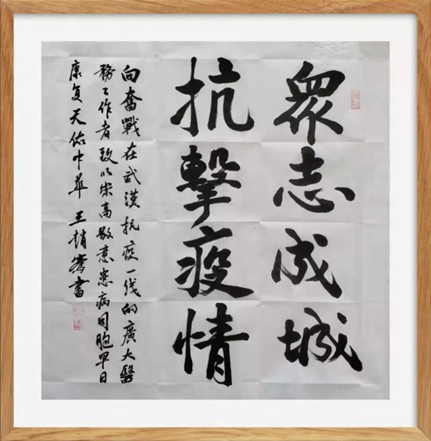 眾志成城
抗擊疫情
向奮戰在武漢抗疫一线的廣大醫
務工作者致以崇高敬意患病同胞早日
康复天佑中華 王書